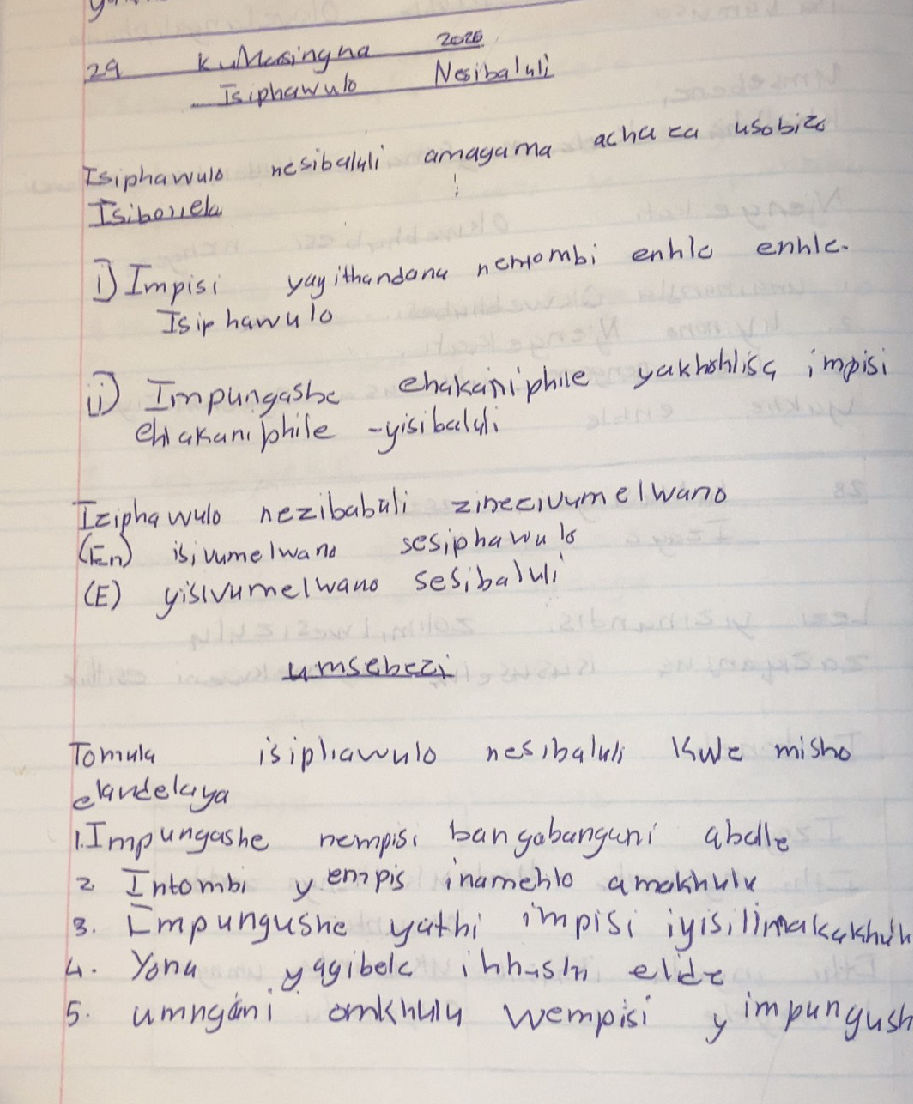 29 KuMasingna 2026
Isiphawulo Nesibaluli
Isiphawulo nesibaluli amagama achaza usobizo
Isibonelo
i) Impisi yayithandana nentombi enhle enhle.
Isiphawulo
ii) Impungashe ehakaniphile yakhohlisa impisi
ehlakaniphile - yisibaluli
Iziphawulo nezibabuli zinezivumelwano
(En) isivumelwano sesiphawulo
(E) yisivumelwano sesibaluli
umsebezi
Tomula isiphawulo nesibaluli kwe misho
elandelaya
1. Impungashe nempisi bangabangani abdle
2 Intombi yempis inamehlo amakhulu
3. Impungushe yathi impisi iyisilimakakhulu
4. Yona yagibele ihhashi elide
5. umngani omkhulu wempisi yimpungush